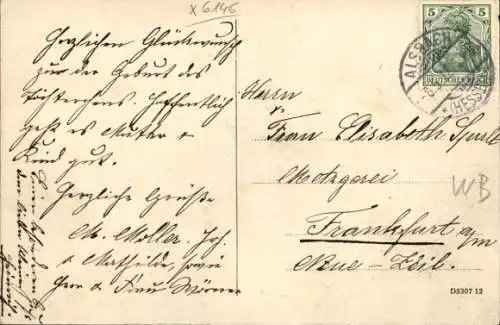 X 6146
Herzlichen Glückwunsch
zur der Geburt des
Töchterchens. Hoffentlich
geht es Mutter &
Kind gut.
Herzliche Grüße
M. Moller. Joh.
& Mathilde, sowie
Herr & Frau Wörner
5
DEUTSCHES REICH
ALSBACH
(HESSEN)
Herrn
&
Frau Elisabeth
Metzgerei
Frankfurt a/m
Neue-Zeil.
WB
D8307 12